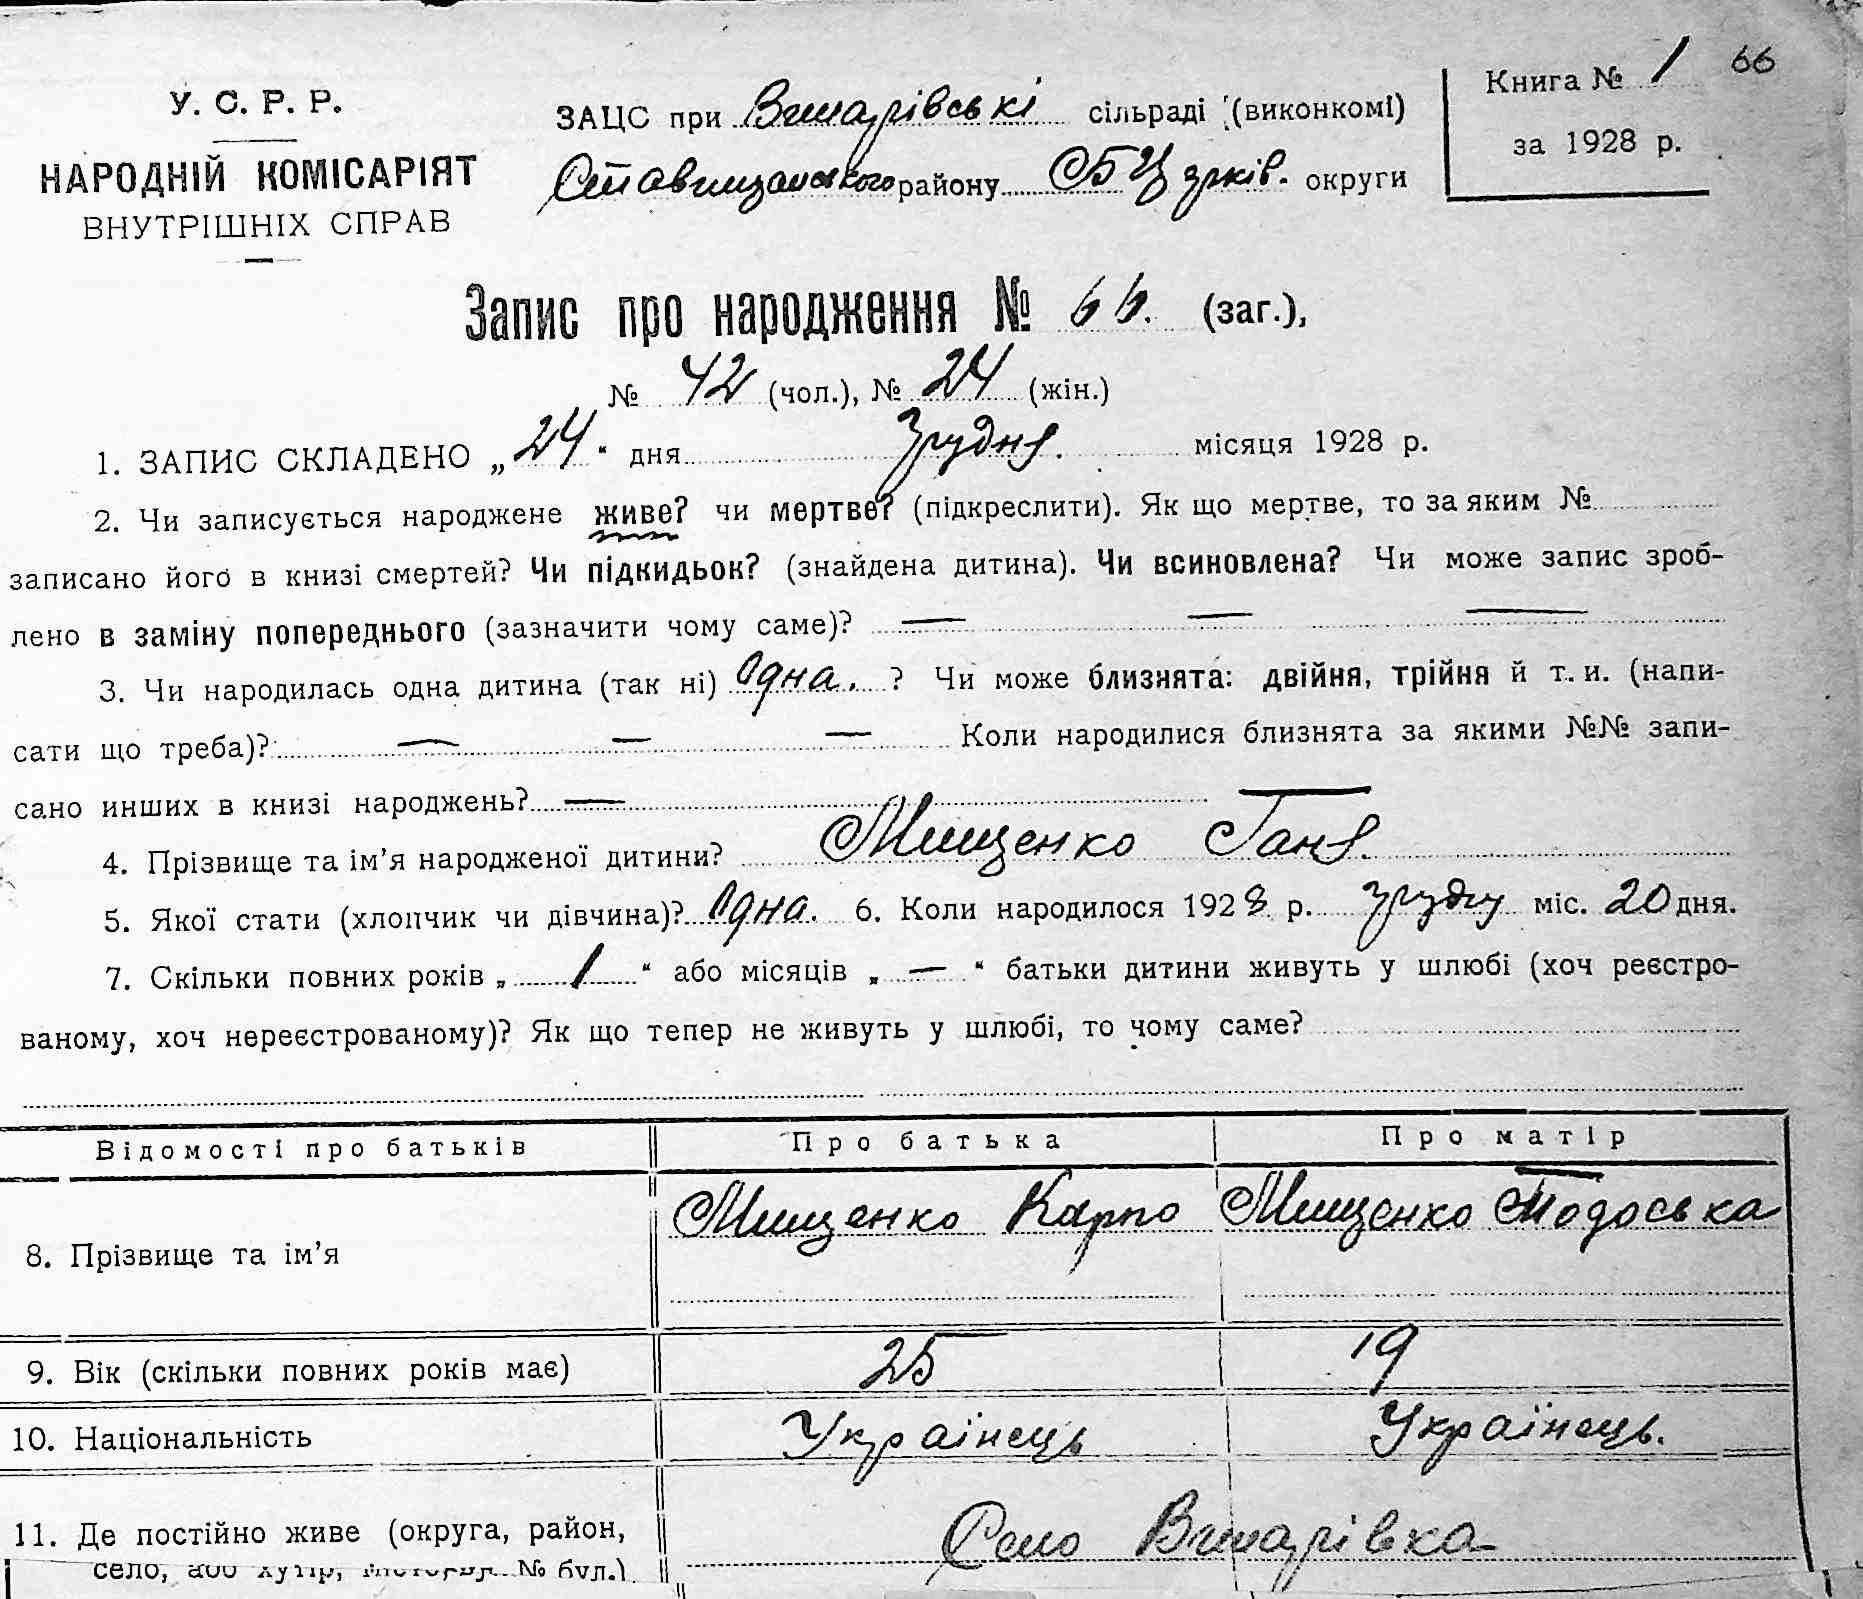 66
У. С. Р. Р.
НАРОДНІЙ КОМІСАРІЯТ
ВНУТРІШНІХ СПРАВ
ЗАЦС при Вишарівські сільраді (виконкомі)
Ставищанського району БЦерків. округи
Книга № 1
за 1928 р.
Запис про народження № 66. (заг.),
№ 42 (чол.), № 24 (жін.)
1. ЗАПИС СКЛАДЕНО „24“ дня Грудня. місяця 1928 р.
2. Чи записується народжене живе? чи мертве? (підкреслити). Як що мертве, то за яким №
записано його в книзі смертей? Чи підкидьок? (знайдена дитина). Чи всиновлена? Чи може запис зроб-
лено в заміну попереднього (зазначити чому саме)? — — —
3. Чи народилась одна дитина (так ні) Одна. ? Чи може близнята: двійня, трійня й т. и. (напи-
сати що треба)? — — — Коли народилися близнята за якими №№ запи-
сано инших в книзі народжень? —
4. Прізвище та ім’я народженої дитини? Мищенко Ганя.
5. Якої стати (хлопчик чи дівчина)? Одна. 6. Коли народилося 1928 р. Грудну міс. 20 дня.
7. Скільки повних років „ 1 “ або місяців „ — “ батьки дитини живуть у шлюбі (хоч реєстро-
ваному, хоч нереєстрованому)? Як що тепер не живуть у шлюбі, то чому саме?
Відомості про батьків Про батька Про матір
8. Прізвище та ім’я Мищенко Карпо Мищенко Тодоська
9. Вік (скільки повних років має) 25 19
10. Національність Українець Українець.
11. Де постійно живе (округа, район, Село Вишарівка
село, або хутір, № бул.)